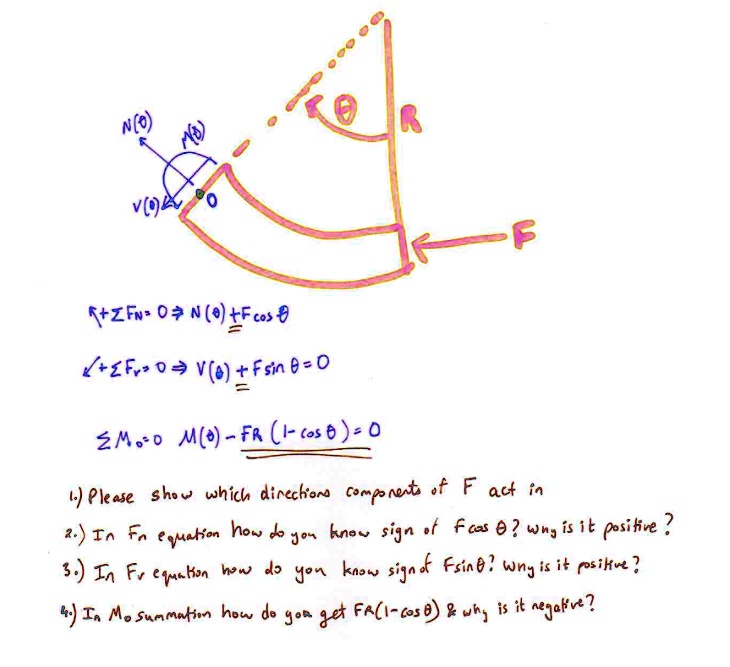 N(θ)
M(θ)
θ
R
V(θ)
O
F
↖+ΣFN=0⇒ N(θ)+Fcosθ
↙+ΣFv=0⇒ V(θ)+Fsinθ=0
ΣMo=0 M(θ)-FR(1-cosθ)=0
1.) Please show which directions components of F act in
2.) In Fn equation how do you know sign of Fcosθ? why is it positive?
3.) In Fv equation how do you know sign of Fsinθ? why is it positive?
4.) In Mo summation how do you get FR(1-cosθ) & why is it negative?